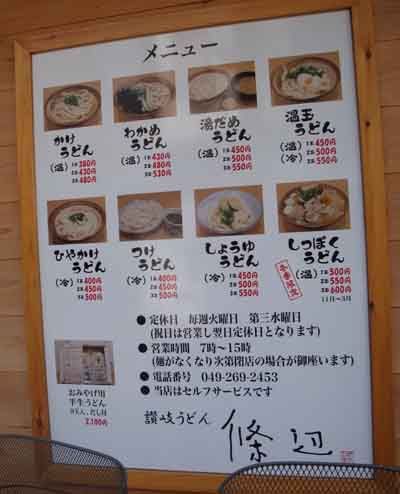 メニュー
かけ
うどん
(温)
1玉 380円
2玉 430円
3玉 480円
わかめ
うどん
(温)
1玉 430円
2玉 480円
3玉 530円
湯だめ
うどん
(温)
1玉 450円
2玉 500円
3玉 550円
温玉
うどん
(温)
(冷)
1玉 450円
2玉 500円
3玉 550円
ひやかけ
うどん
(冷)
1玉 400円
2玉 450円
3玉 500円
つけ
うどん
(冷)
1玉 400円
2玉 450円
3玉 500円
しょうゆ
うどん
(冷)
1玉 450円
2玉 500円
3玉 550円
しっぽく
うどん
冬季限定
(温)
1玉 500円
2玉 550円
3玉 600円
11月〜3月
● 定休日 毎週火曜日 第三水曜日
(祝日は営業し翌日定休日となります)
● 営業時間 7時〜15時
(麺がなくなり次第閉店の場合が御座います)
● 電話番号 049-269-2453
● 当店はセルフサービスです
おみやげ用
半生うどん
だし付
2,100円
讃岐うどん
條辺